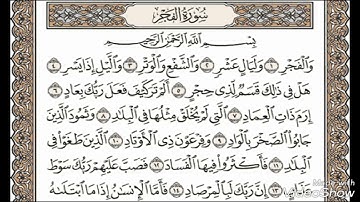 سُورَةُ الفَجْرِ
بِسْمِ اللَّهِ الرَّحْمَٰنِ الرَّحِيمِ
وَالْفَجْرِ ١ وَلَيَالٍ عَشْرٍ ٢ وَالشَّفْعِ وَالْوَتْرِ ٣ وَاللَّيْلِ إِذَا يَسْرِ ٤
هَلْ فِي ذَٰلِكَ قَسَمٌ لِّذِي حِجْرٍ ٥ أَلَمْ تَرَ كَيْفَ فَعَلَ رَبُّكَ بِعَادٍ ٦
إِرَمَ ذَاتِ الْعِمَادِ ٧ الَّتِي لَمْ يُخْلَقْ مِثْلُهَا فِي الْبِلَادِ ٨ وَثَمُودَ الَّذِينَ
جَابُوا الصَّخْرَ بِالْوَادِ ٩ وَفِرْعَوْنَ ذِي الْأَوْتَادِ ١٠ الَّذِينَ طَغَوْا فِي
الْبِلَادِ ١١ فَأَكْثَرُوا فِيهَا الْفَسَادَ ١٢ فَصَبَّ عَلَيْهِمْ رَبُّكَ سَوْطَ
عَذَابٍ ١٣ إِنَّ رَبَّكَ لَبِالْمِرْصَادِ ١٤ فَأَمَّا الْإِنسَانُ إِذَا مَا ابْتَلَاهُ
Made with
VideoShow